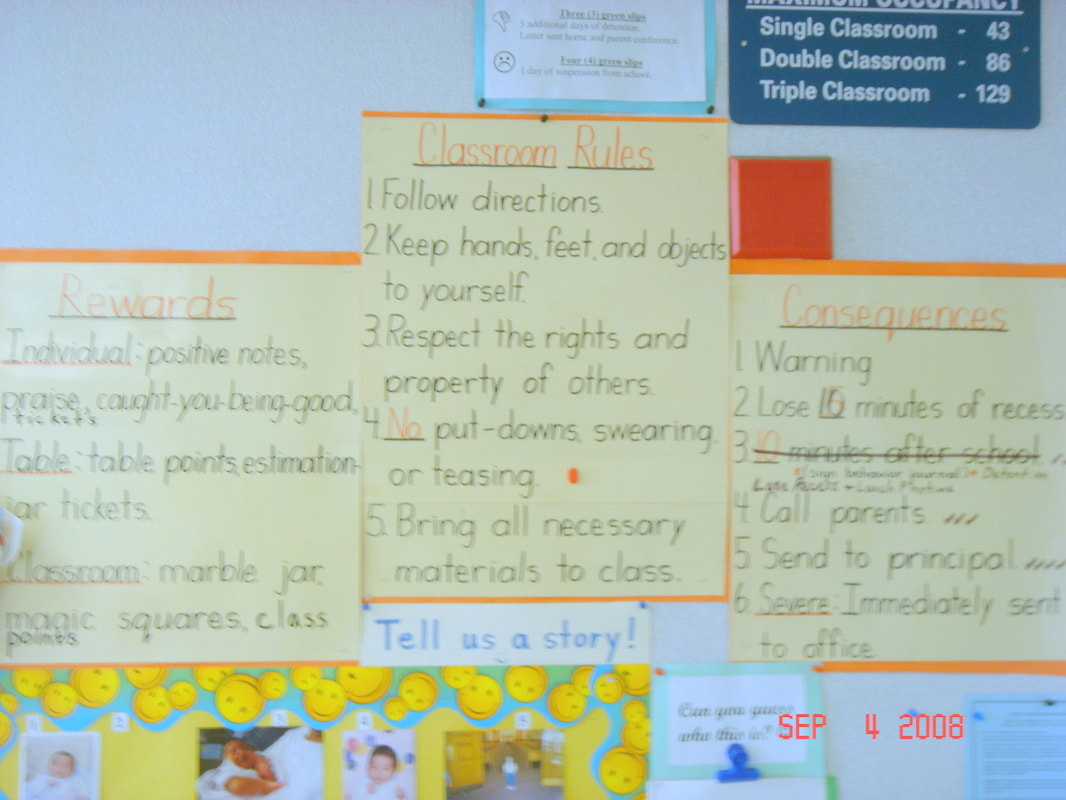 Three (3) green slips
5 additional days of detention.
Letter sent home and parent conference.
Four (4) green slips
1 day of suspension from school.
MAXIMUM OCCUPANCY
Single Classroom - 43
Double Classroom - 86
Triple Classroom - 129
Classroom Rules
1. Follow directions.
2. Keep hands, feet, and objects
to yourself.
3. Respect the rights and
property of others.
4. No put-downs, swearing,
or teasing.
5. Bring all necessary
materials to class.
Rewards
Individual: positive notes,
praise, caught-you-being-good,
tickets
Table: table points, estimation-
jar tickets.
Classroom: marble jar,
magic squares, class
points
Consequences
1 Warning
2 Lose 15 minutes of recess
3. 10 minutes after school.
(sign behavior journal)
4. Call parents.
5. Send to principal.
6. Severe: Immediately sent
to office.
Tell us a story!
1
2
3
4
5
Can you guess
who this is?
SEP 4 2008